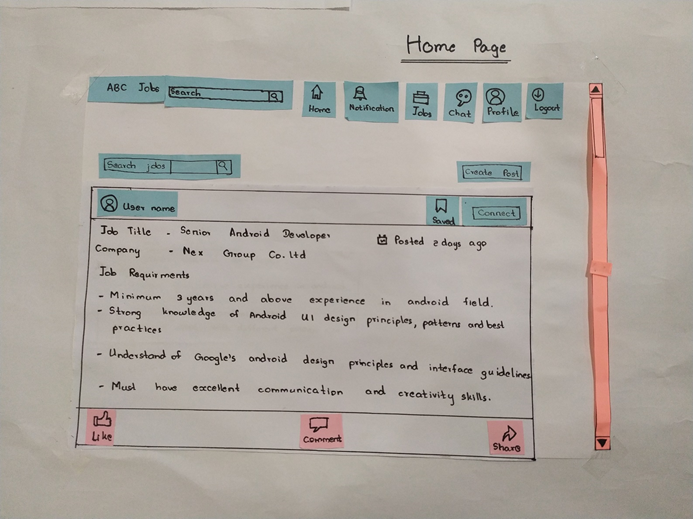 Home Page
ABC Jobs
Search
Home
Notification
Jobs
Chat
Profile
Logout
Search jobs
Create Post
User name
Saved
Connect
Job Title - Senior Android Developer
Posted 2 days ago
Company - Nex Group Co.ltd
Job Requirments
- Minimum 3 years and above experience in android field.
- Strong knowledge of Android UI design principles, patterns and best
practices
- Understand of Google's android design principles and interface guidelines
- Must have excellent communication and creativity skills.
Like
Comment
Share